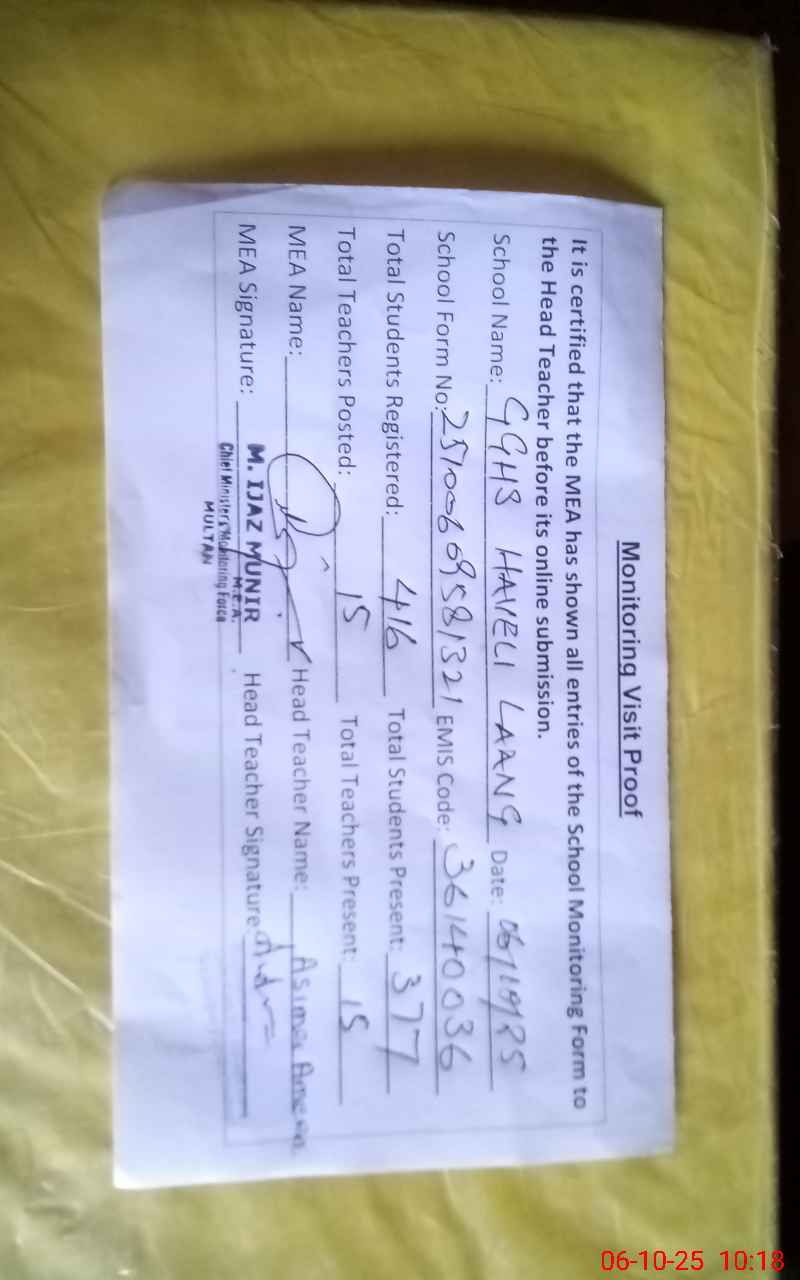 Monitoring Visit Proof
It is certified that the MEA has shown all entries of the School Monitoring Form to
the Head Teacher before its online submission.
School Name: GGHS HAVELI LAANG Date: 06/10/25
School Form No: 25100669581321 EMIS Code: 36140036
Total Students Registered: 416 Total Students Present: 377
Total Teachers Posted: 15 Total Teachers Present: 15
MEA Name: Head Teacher Name: Asima Ameen
MEA Signature: Head Teacher Signature:
M. IJAZ MUNIR
M.E.A.
Chief Minister's Monitoring Force
MULTAN
06-10-25 10:18